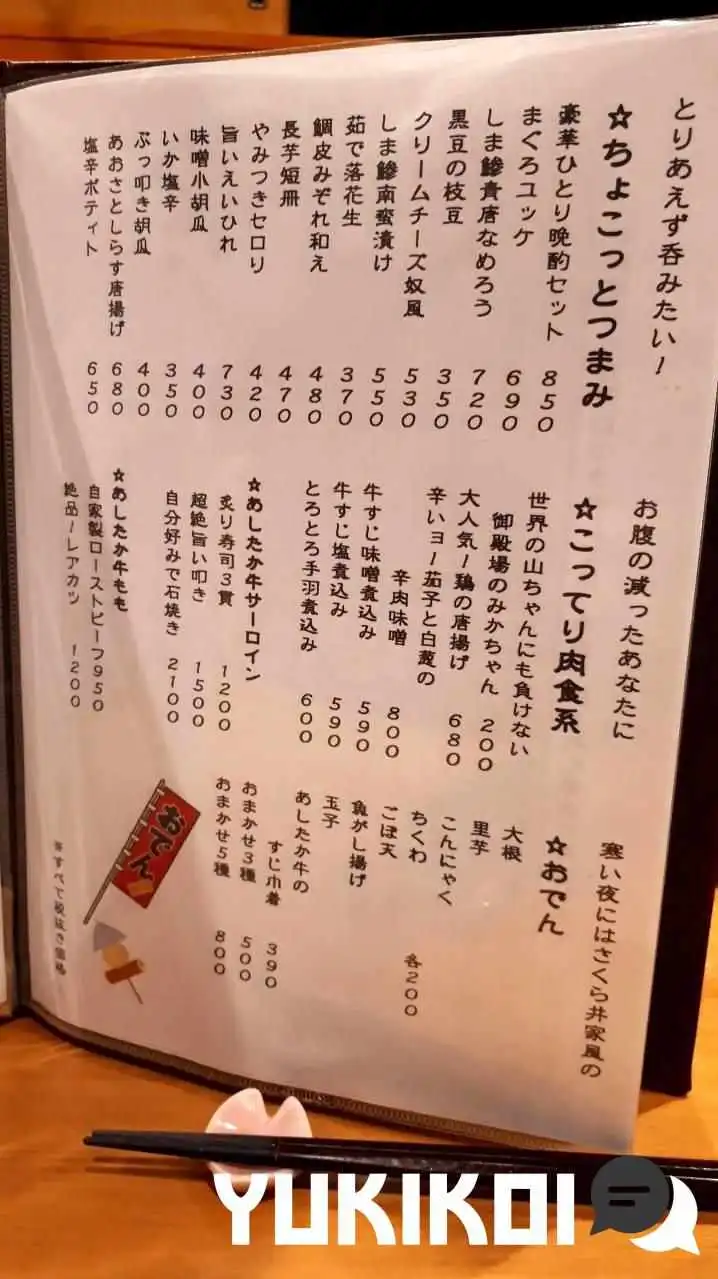 とりあえず呑みたい！
☆ちょこっとつまみ
豪華ひとり晩酌セット 850
まぐろユッケ 690
しま鯵青唐なめろう 720
黒豆の枝豆 350
クリームチーズ奴風 530
しま鯵南蛮漬け 550
茹で落花生 370
鯛皮みぞれ和え 480
長芋短冊 470
やみつきセロリ 420
旨いえいひれ 730
味噌小胡瓜 400
いか塩辛 350
ぶっ叩き胡瓜 400
あおさとしらす唐揚げ 680
塩辛ポティト 650
お腹の減ったあなたに
☆こってり肉食系
世界の山ちゃんにも負けない
御殿場のみかちゃん 200
大人気！鶏の唐揚げ 680
辛いヨ！茄子と白葱の
辛肉味噌 800
牛すじ味噌煮込み 590
牛すじ塩煮込み 590
とろとろ手羽煮込み 600
☆あしたか牛サーロイン
炙り寿司3貫 1200
超絶旨い叩き 1500
自分好みで石焼き 2100
☆あしたか牛もも
自家製ローストビーフ950
絶品！レアカツ 1200
寒い夜にはさくら井家風の
☆おでん
大根
里芋
こんにゃく
ちくわ 各200
ごぼ天
魚がし揚げ
玉子
あしたか牛の
すじ巾着 390
おまかせ3種 500
おまかせ5種 800
おでん
※すべて税抜き価格
YUKIKOI